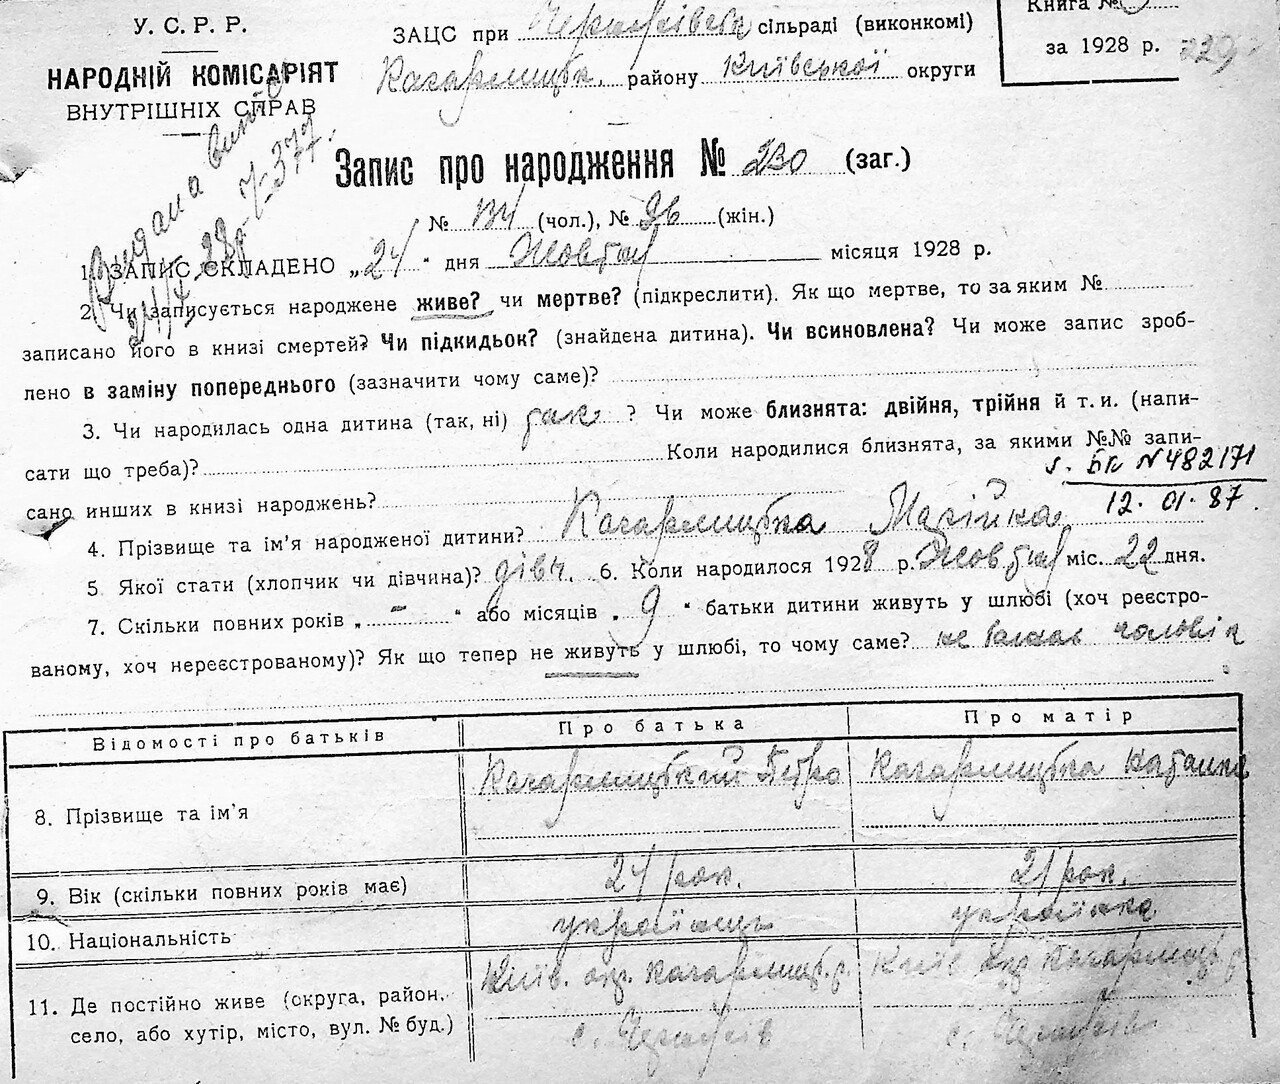 У. С. Р. Р.
НАРОДНІЙ КОМІСАРІЯТ
ВНУТРІШНІХ СПРАВ
ЗАЦС при сільраді (виконкомі)
Кагарлицьк. району Київської округи
Книга №
за 1928 р. 229
Видана
Запис про народження № 230 (заг.)
№ 134 (чол.), № 96 (жін.)
1. ЗАПИС СКЛАДЕНО „24" дня Жовтня місяця 1928 р.
2. Чи записується народжене живе? чи мертве? (підкреслити). Як що мертве, то за яким №
записано його в книзі смертей? Чи підкидьок? (знайдена дитина). Чи всиновлена? Чи може запис зроб-
лено в заміну попереднього (зазначити чому саме)?
3. Чи народилась одна дитина (так, ні) так ? Чи може близнята: двійня, трійня й т. и. (напи-
сати що треба)? Коли народилися близнята, за якими №№ запи-
сано инших в книзі народжень?
N 482171
12.01.87.
4. Прізвище та ім'я народженої дитини? Кагарлицька Марійка
5. Якої стати (хлопчик чи дівчина)? дівч. 6. Коли народилося 1928 р. Жовтня міс. 22 дня.
7. Скільки повних років „ – " або місяців „ 9 " батьки дитини живуть у шлюбі (хоч реєстро-
ваному, хоч нереєстрованому)? Як що тепер не живуть у шлюбі, то чому саме? не
Відомості про батьків Про батька Про матір
8. Прізвище та ім'я Кагарлицький Петро Кагарлицька
9. Вік (скільки повних років має) 24 рок. 21 рок.
10. Національність українець українка
11. Де постійно живе (округа, район, Київ. окр. Кагарлиц. р. Київ окр Кагарлиц. р
село, або хутір, місто, вул. № буд.) с. с.